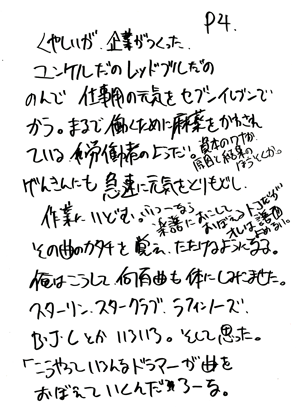 P4.
くやしいが、企業がつくった
ユンケルだのレッドブルだの
のんで 仕事用の元気をセブンイレブンで
かう。まるで働くために麻薬をかわされ
ている 労働者のようだ。
げんきんにも 急速に元気をとりもどし
作業にいどむ。ふつーなら
楽譜におこして
おぼえるトコだが
オレは譜面
よめない。
その曲のカタチを覚え、たたけるようになる。
俺はこうして何百曲も体にしみこました。
スターリン、スタークラブ、ラフィンノーズ、
B.J.Cとか いろいろ。そして思った。
「こうやっていろんなドラマーが曲を
おぼえていくんだろーな。